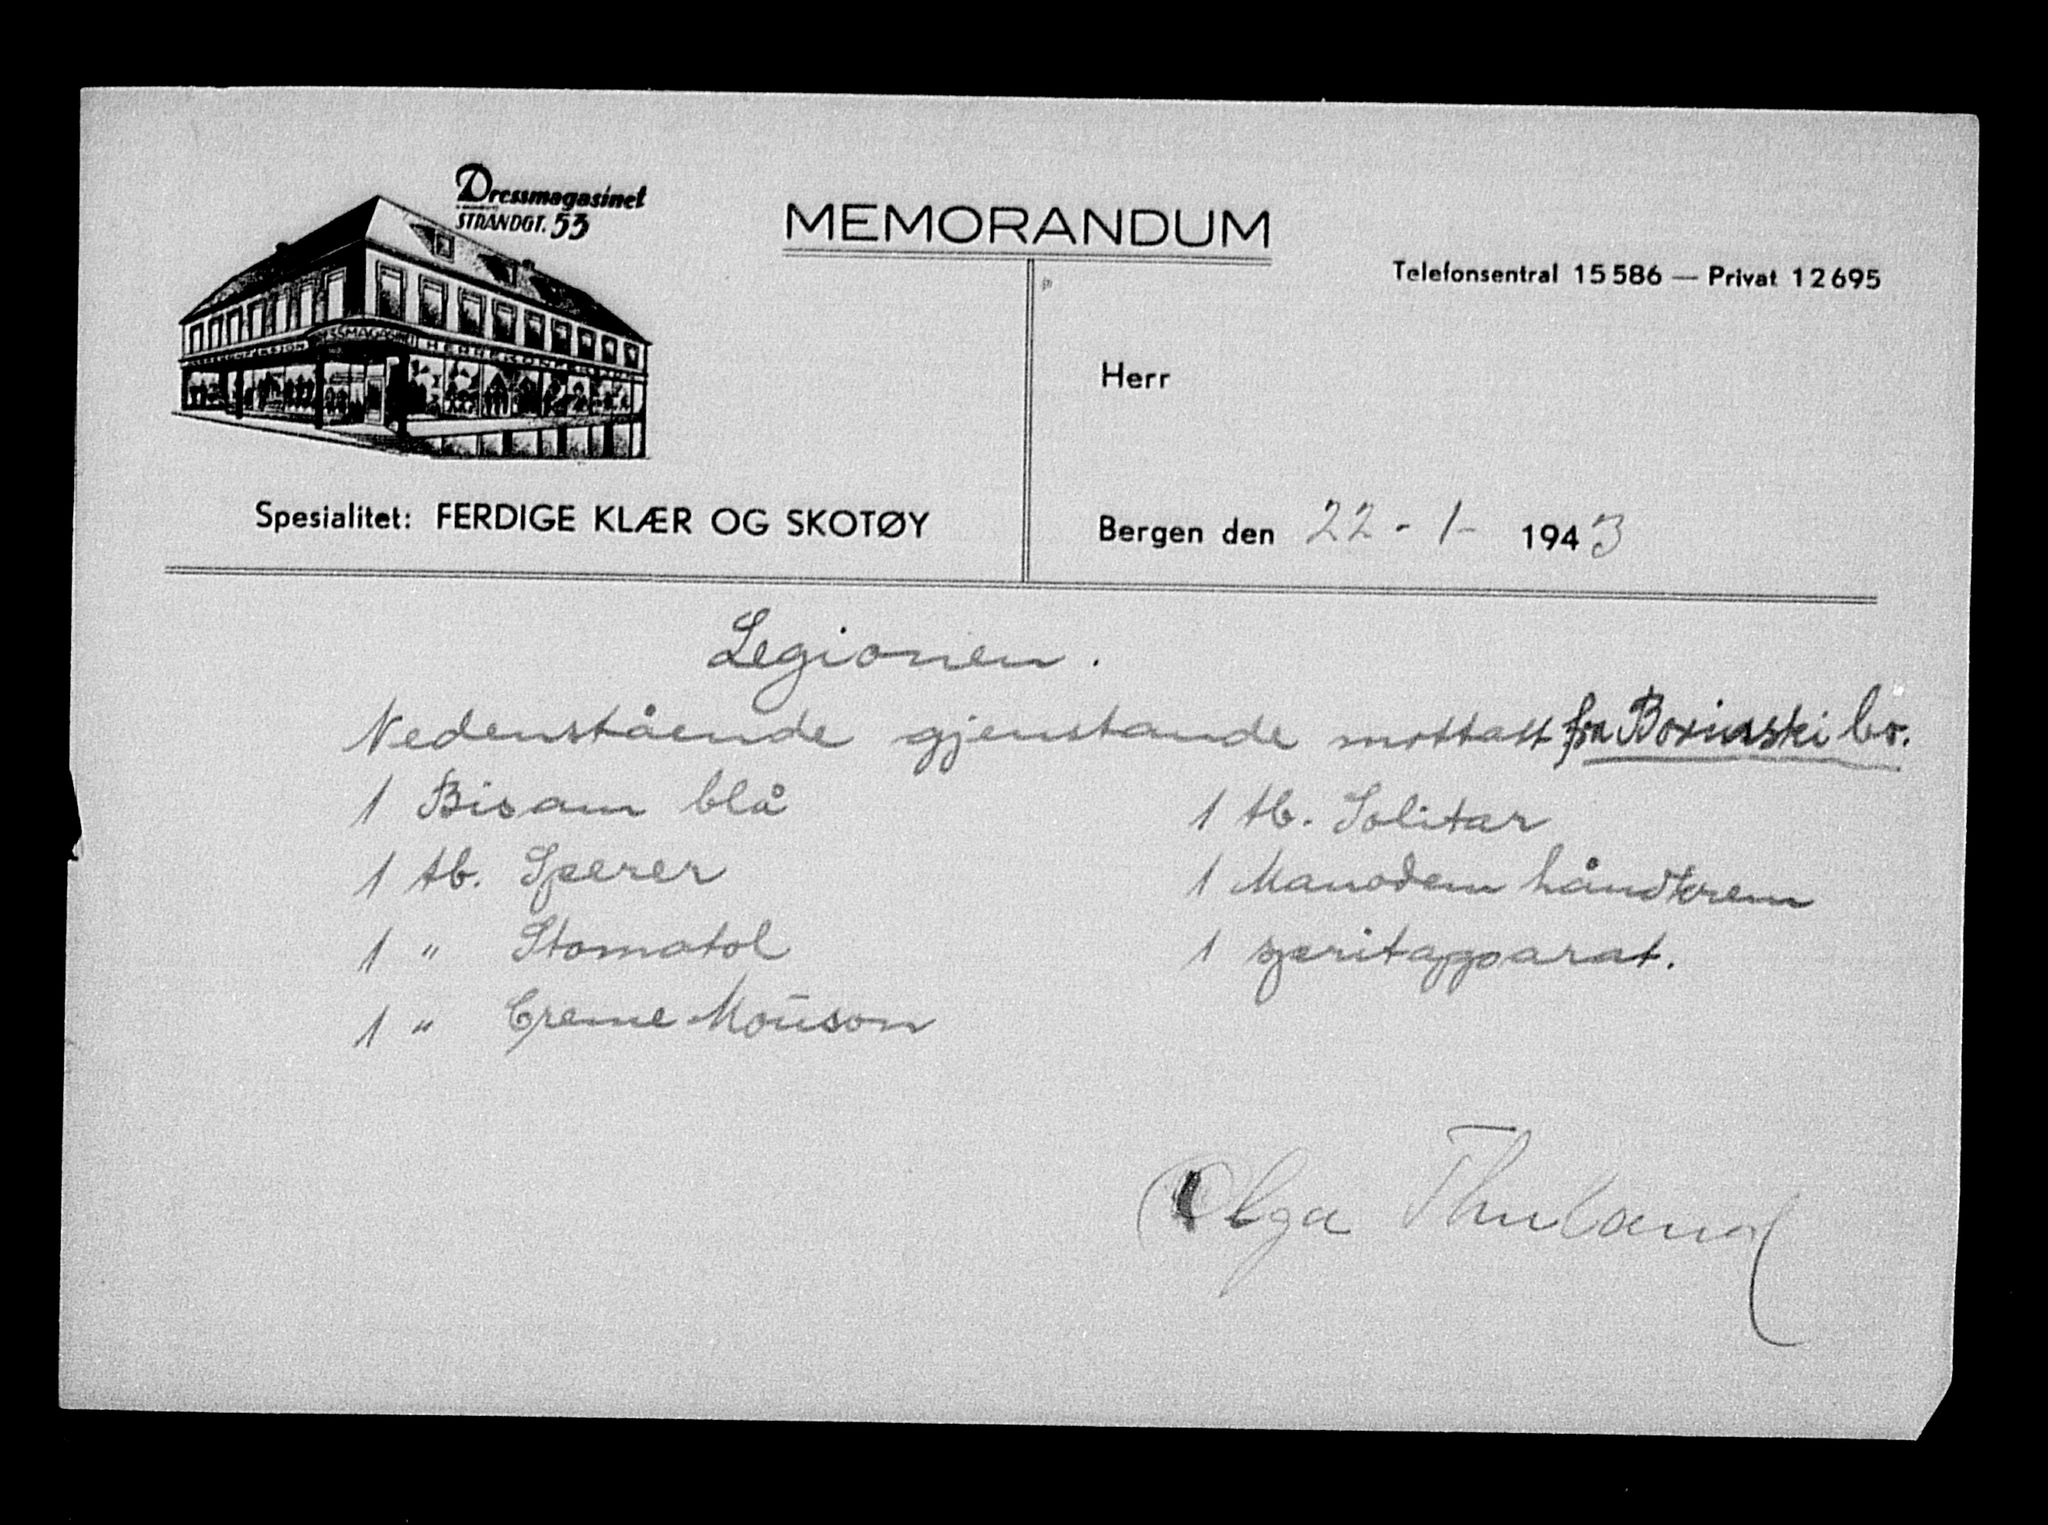 Dressmagasinet
STRANDGT. 53
MEMORANDUM
Telefonsentral 15586 — Privat 12695
Herr
Spesialitet: FERDIGE KLÆR OG SKOTØY
Bergen den 22-1- 1943
Legionen.
Nedenstående gjenstande mottatt fra Borinski Co.
1 Bisam blå
1 tb. Sperer
1 " Stomatol
1 " Creme Mouson
1 tb. Solitar
1 Manodem håndkrem
1 spritapparat.
Olga Thuland